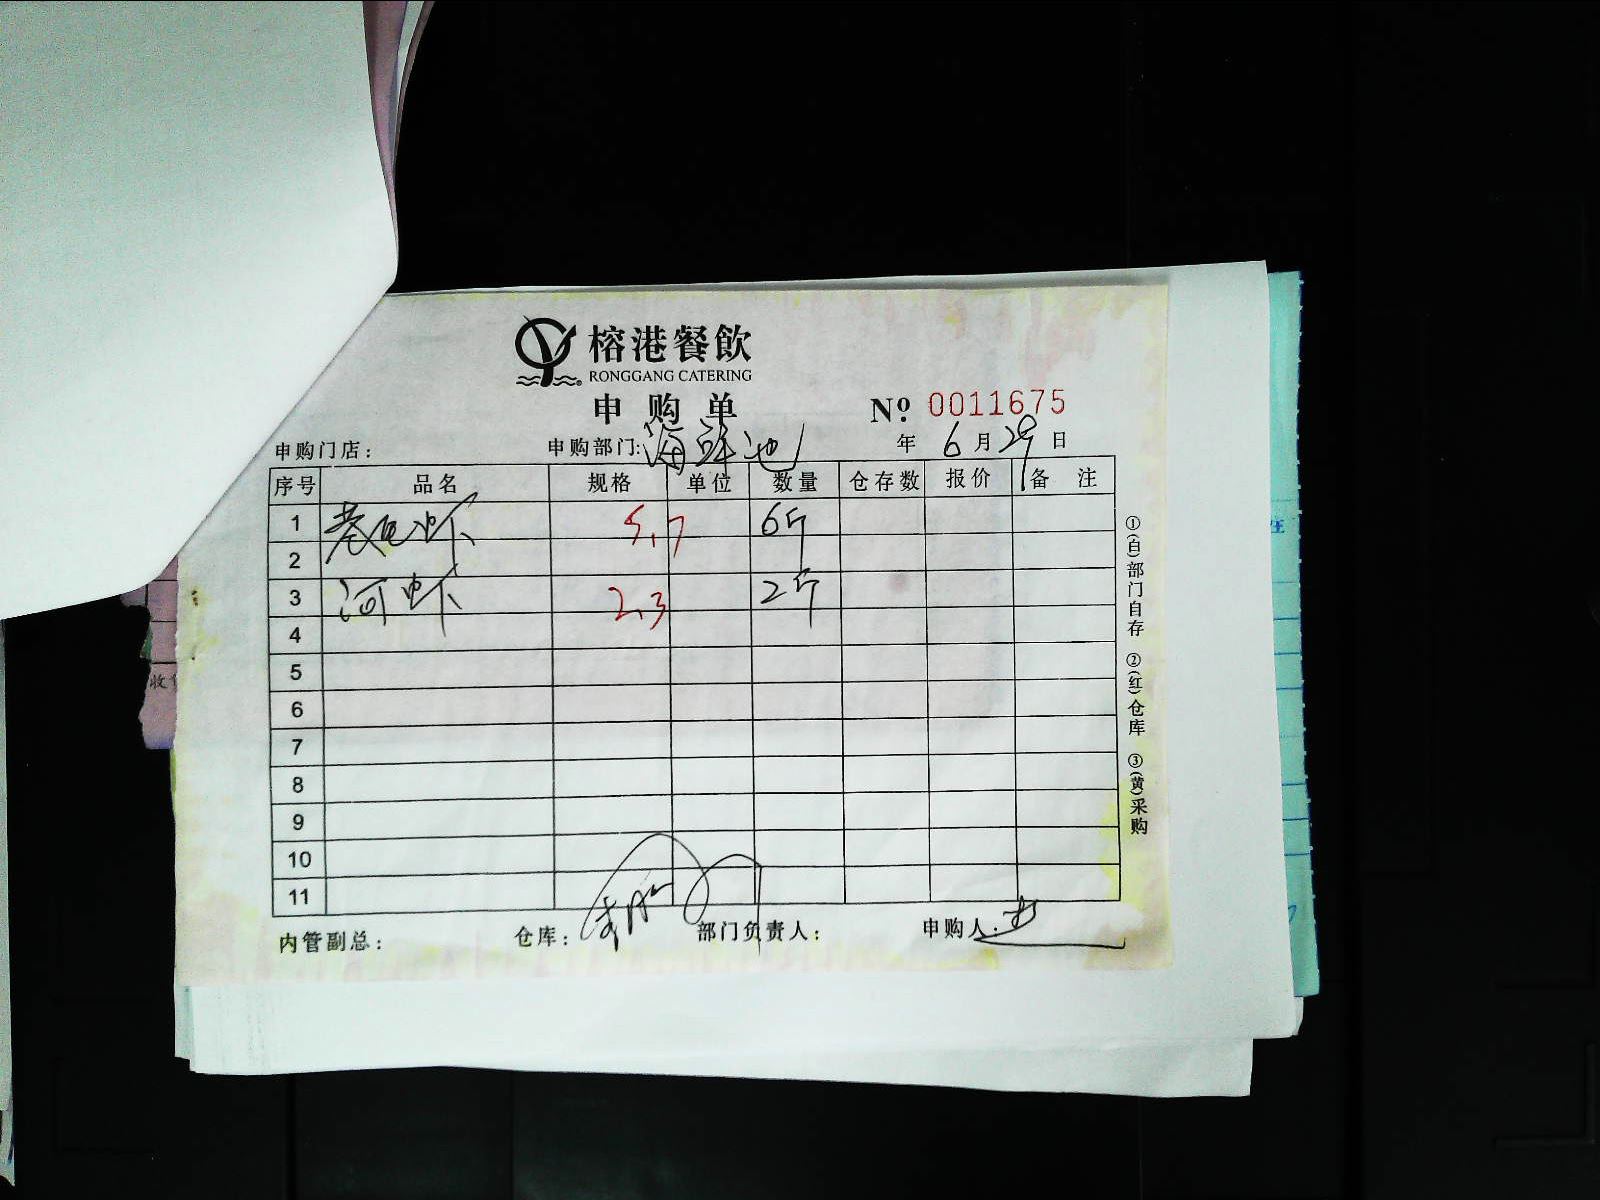 榕港餐飲
RONGGANG CATERING
申购单
№ 0011675
申购门店： 申购部门: 海鲜池 年 6 月 29 日
序号 品名 规格 单位 数量 仓存数 报价 备注
1 基围虾 5.7 6斤
2
3 河虾 2.3 2斤
4
5
6
7
8
9
10
11
内管副总： 仓库： 部门负责人： 申购人：
①(白)部门自存 ②(红)仓库 ③(黄)采购
收